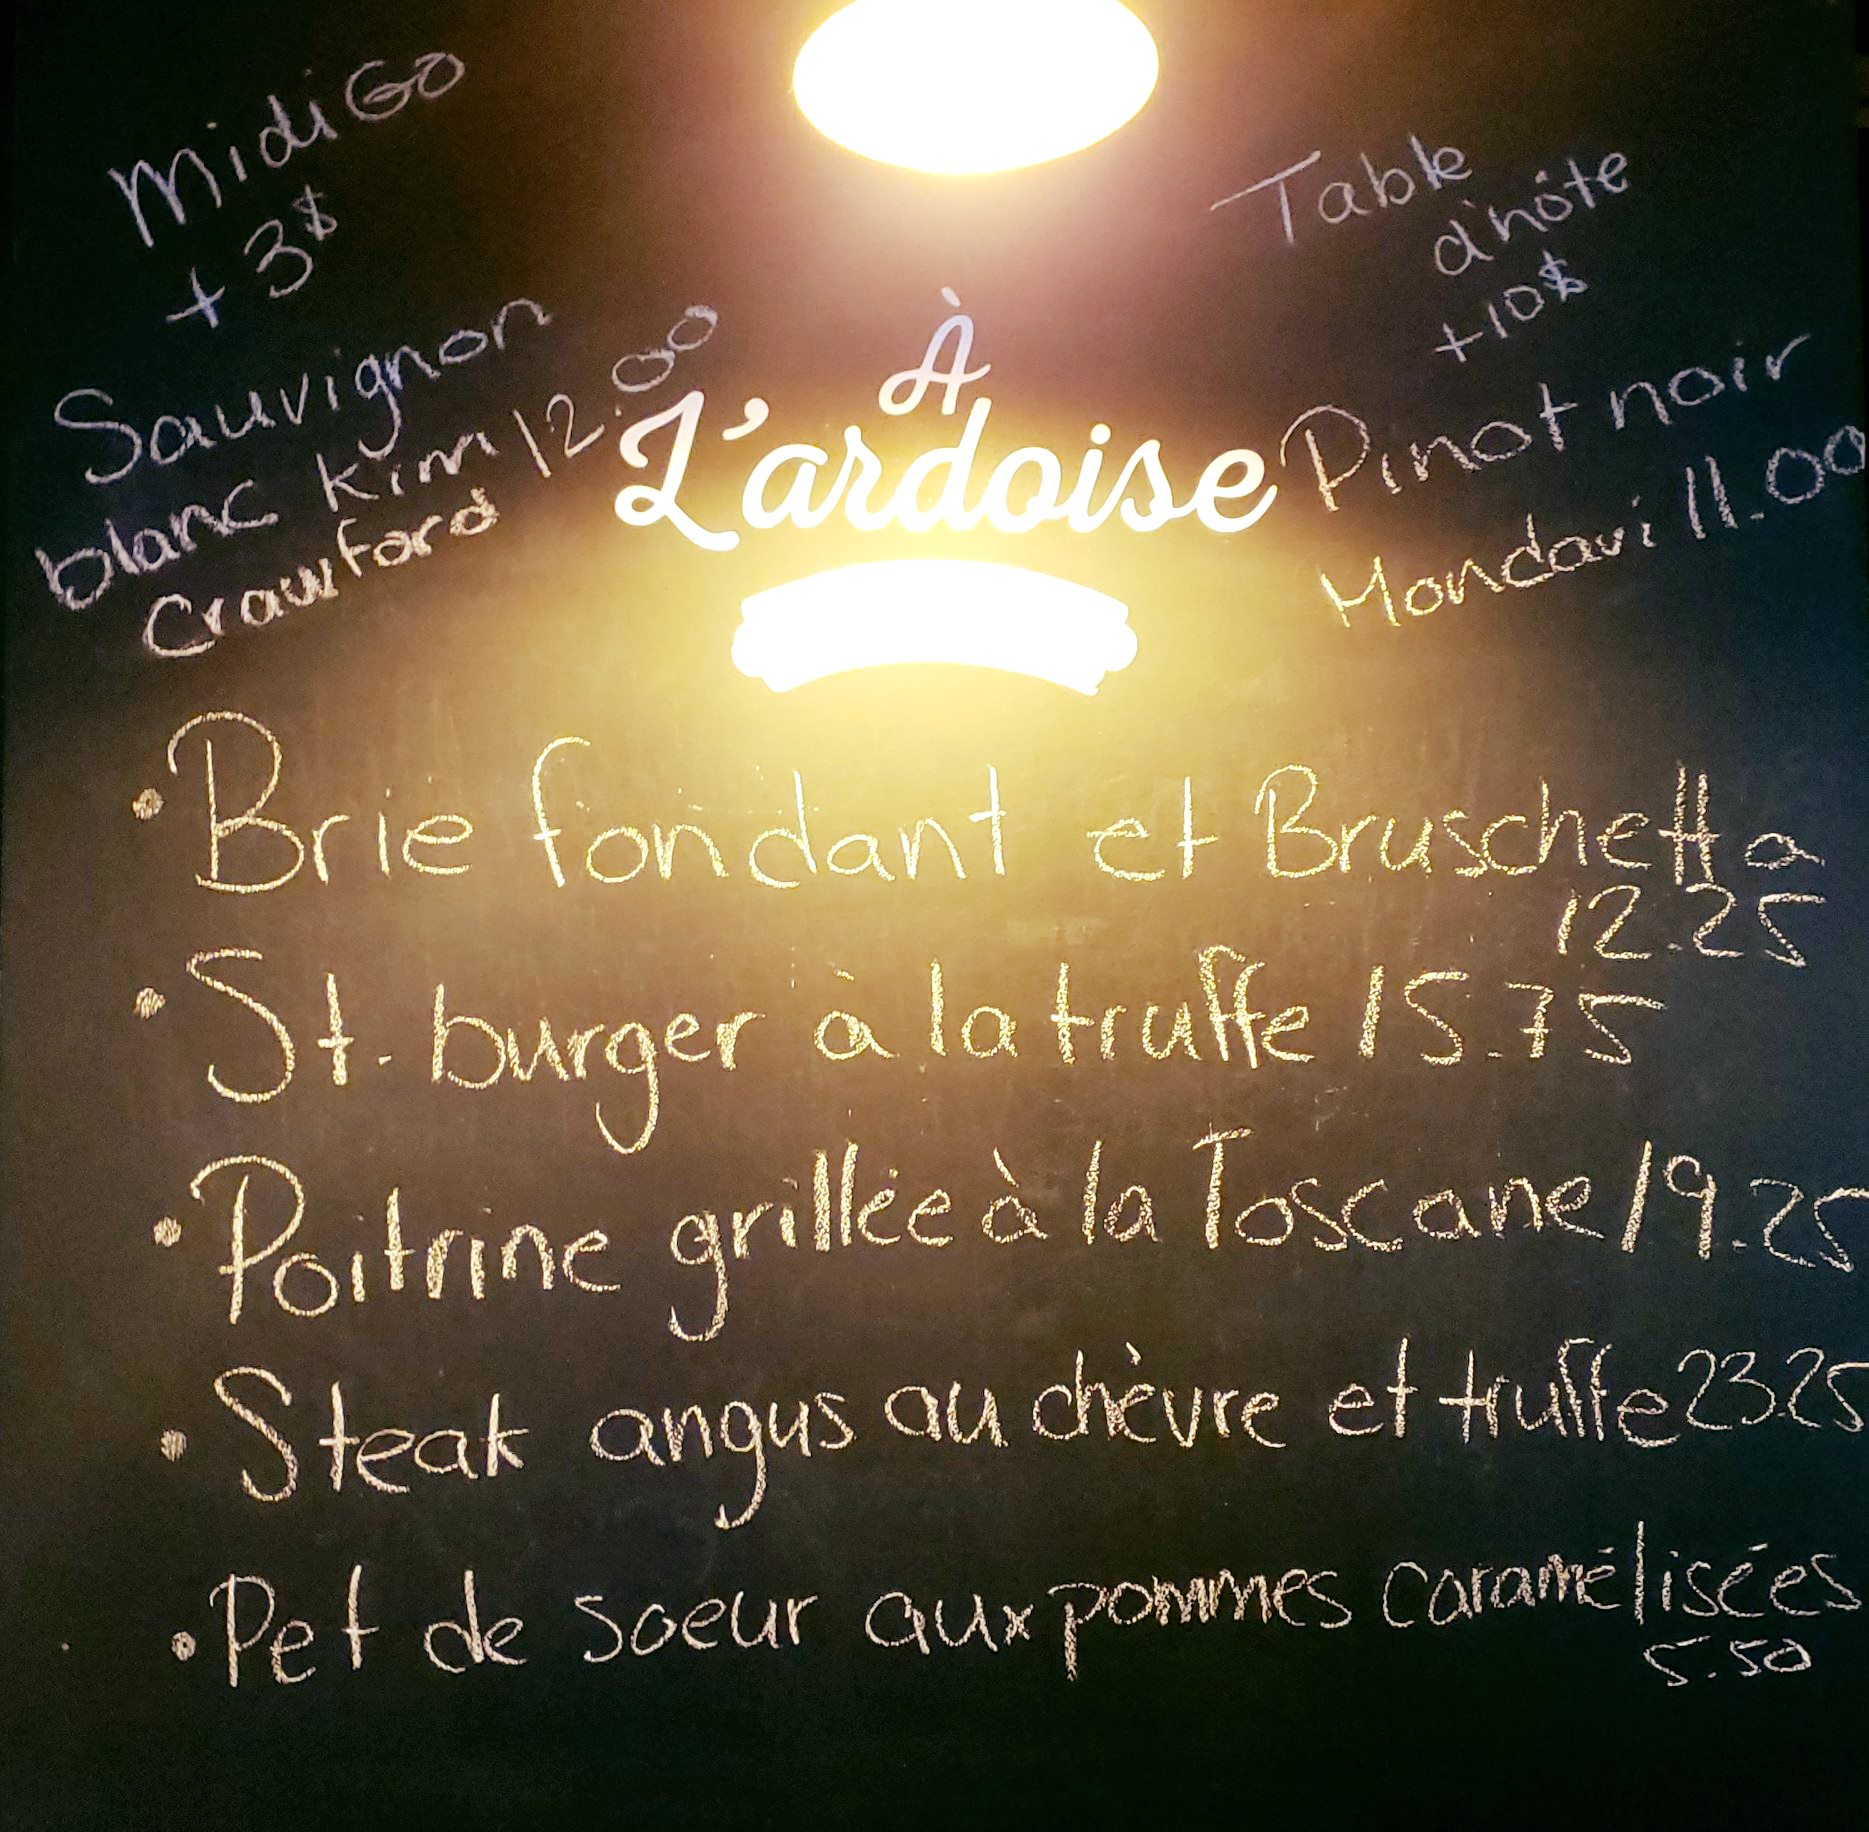 Midi GO
+ 3$
Sauvignon
blanc Kim 12.00
Crawford
Table
d'hôte
+10$
Pinot noir
Mondavi 11.00
À
L'ardoise
• Brie fondant et Bruschetta
12.25
• St. burger à la truffe 15.75
• Poitrine grillée à la Toscane 19.25
• Steak angus au chèvre et truffe 23.25
• Pet de soeur aux pommes caramélisées
5.50